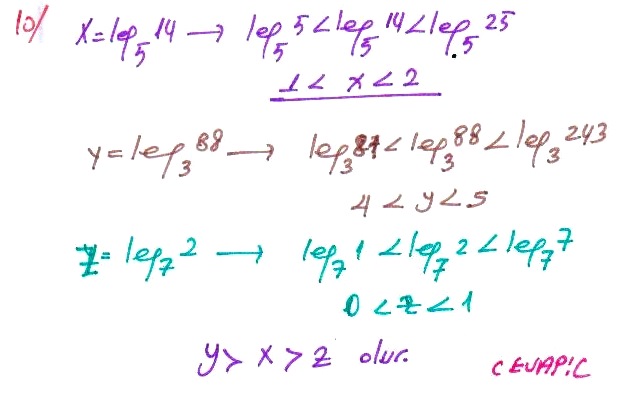 10/ x = log₅14 → log₅5 < log₅14 < log₅25
1 < x < 2
y = log₃88 → log₃81 < log₃88 < log₃243
4 < y < 5
z = log₇2 → log₇1 < log₇2 < log₇7
0 < z < 1
y > x > z olur.
CEVAP: C